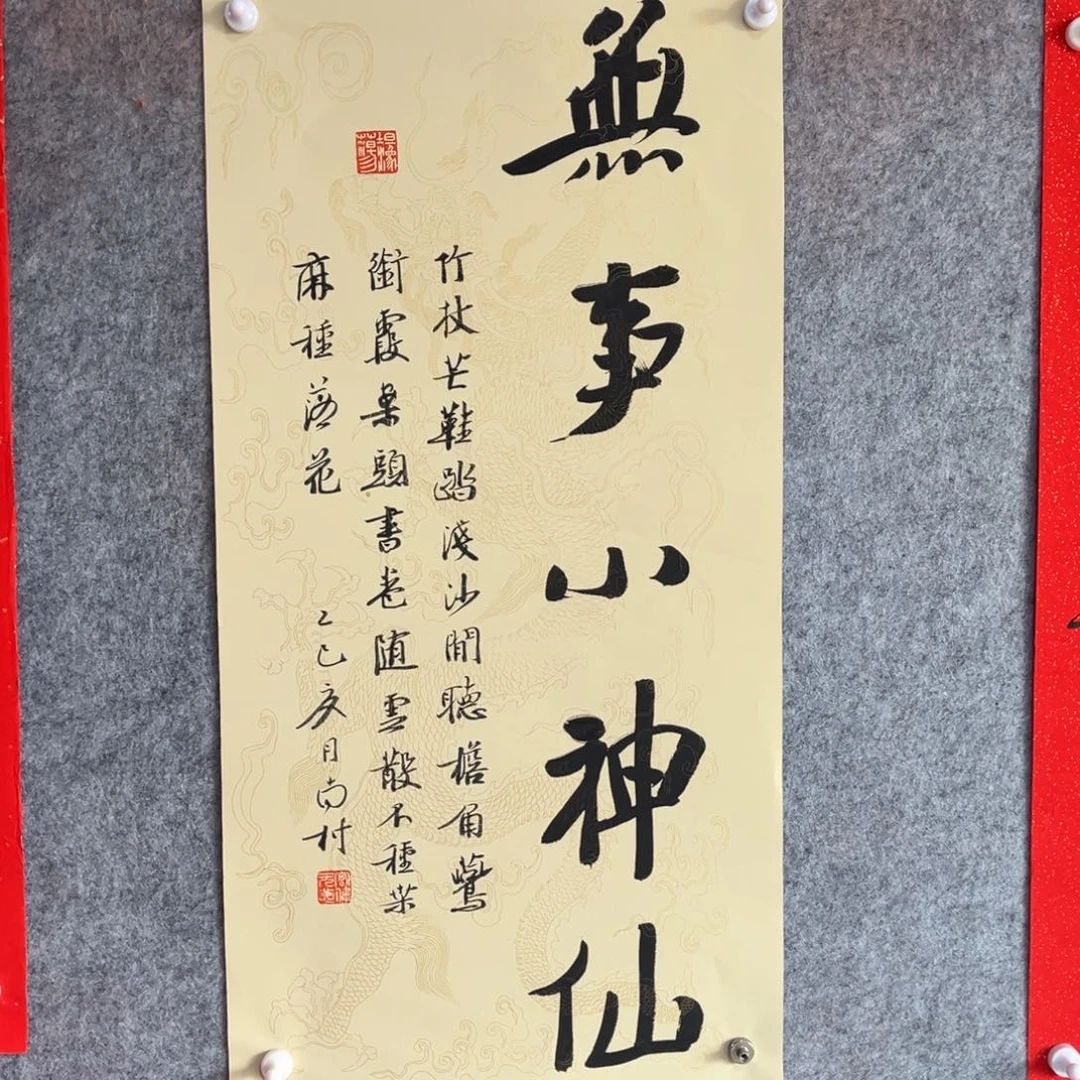 無事小神仙
竹杖芒鞋踏淺沙閒聽檐角鶯
銜霞案頭書卷隨雲散不種桑
麻種落花
乙巳亥月南村